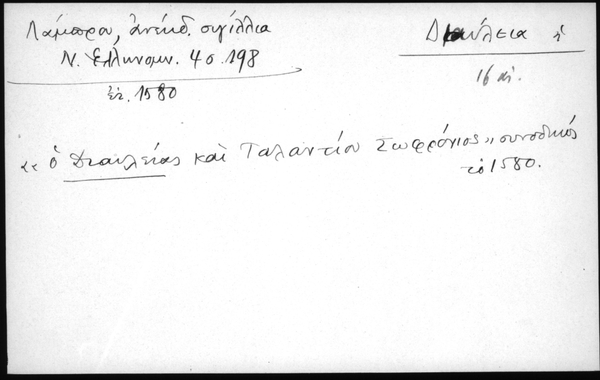 Λάμπρου, ἀνέκδ. σιγίλλια
Ν. Ἑλληνομν. 4 σ. 198
ἔτ. 1580
Διαύλεια ἡ
16 αἰ.
"ὁ Διαυλείας καὶ Ταλαντίου Σωφρόνιος" συνοδικῶς
τῷ 1580.